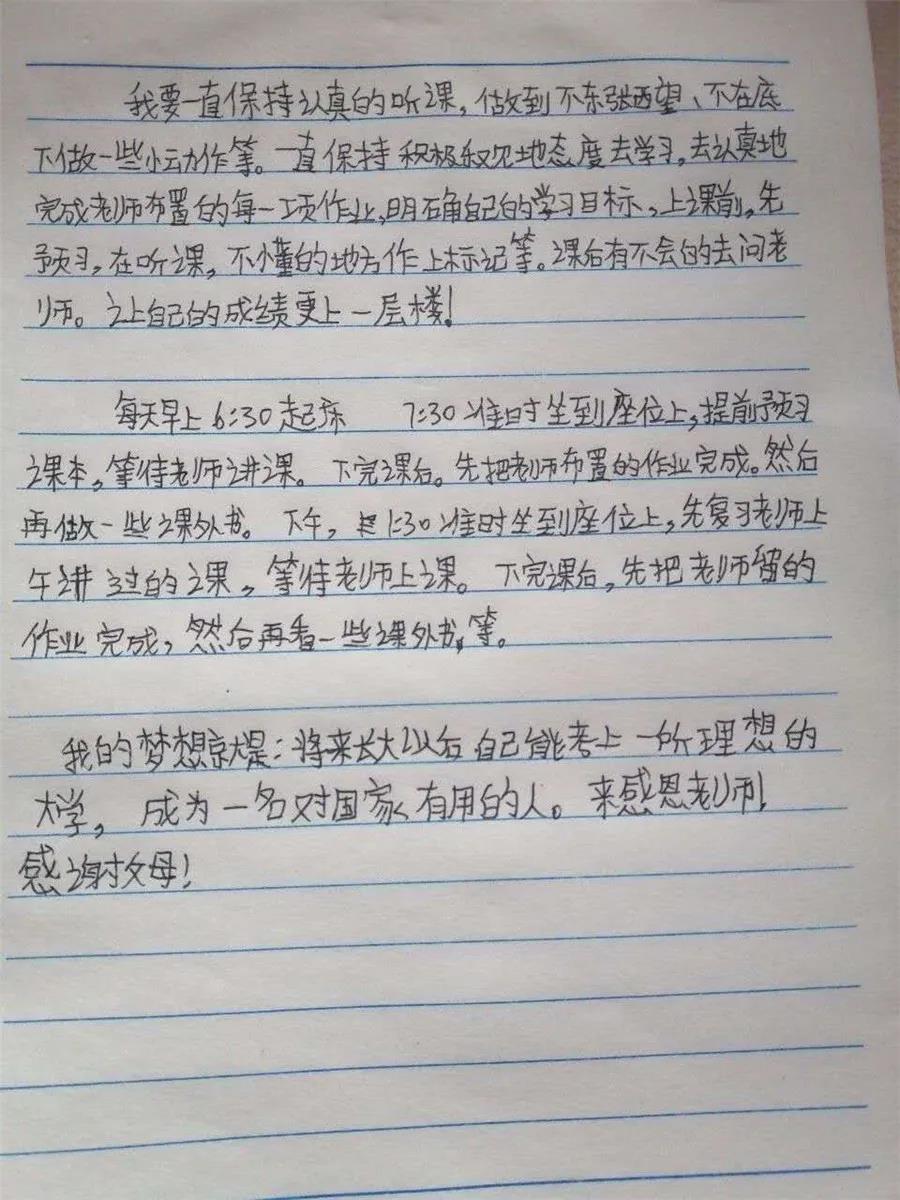 我要一直保持认真的听课，做到不东张西望、不在底
下做一些小动作等。一直保持积极乐观地态度去学习，去认真地
完成老师布置的每一项作业，明确自己的学习目标，上课前，先
预习，在听课，不懂的地方作上标记等。课后有不会的去问老
师。让自己的成绩更上一层楼！
每天早上6:30起床 7:30准时坐到座位上，提前预习
课本，等待老师讲课。下完课后。先把老师布置的作业完成。然后
再做一些课外书。下午，1:30准时坐到座位上，先复习老师上
午讲过的课，等待老师上课。下完课后，先把老师留的
作业完成，然后再看一些课外书，等。
我的梦想就是：将来长大以后自己能考上一所理想的
大学，成为一名对国家有用的人。来感恩老师！
感谢父母！